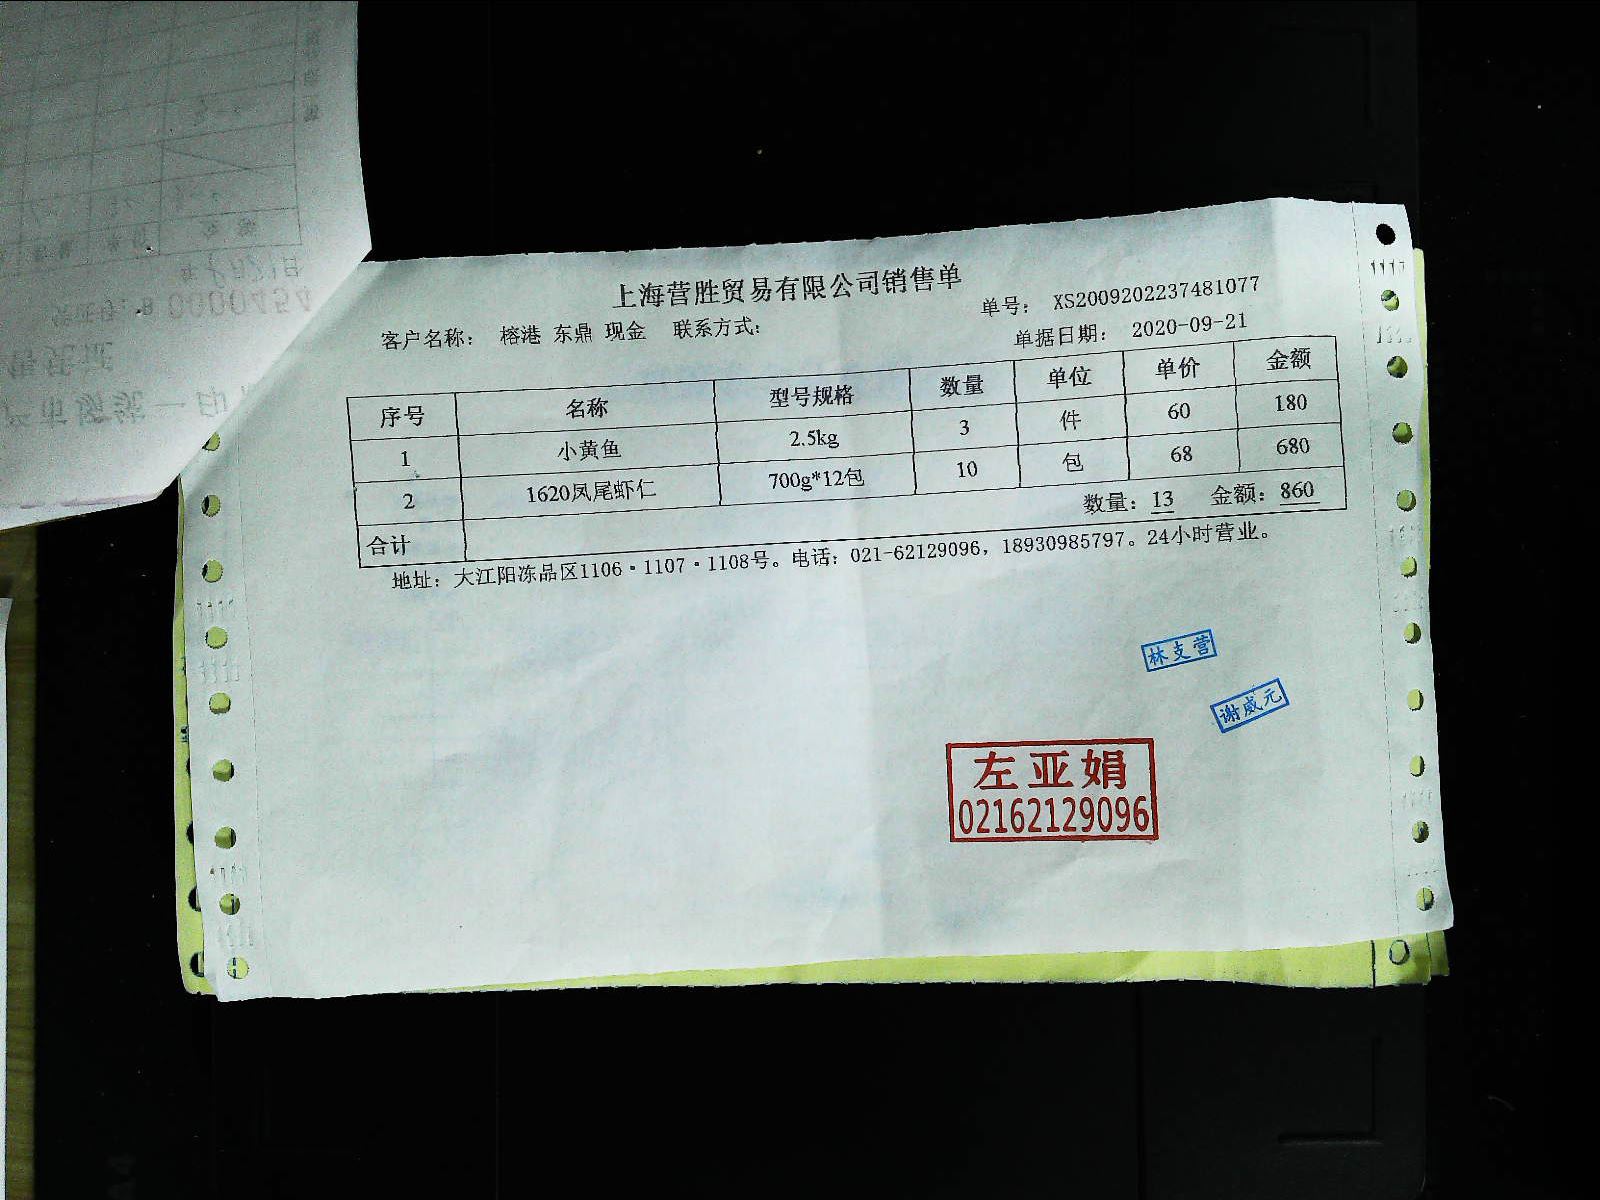 上海营胜贸易有限公司销售单
单号： XS2009202237481077
客户名称： 榕港 东鼎 现金 联系方式：
单据日期： 2020-09-21
序号 名称 型号规格 数量 单位 单价 金额
1 小黄鱼 2.5kg 3 件 60 180
2 1620凤尾虾仁 700g*12包 10 包 68 680
合计 数量：13 金额：860
地址：大江阳冻品区1106·1107·1108号。电话：021-62129096，18930985797。24小时营业。
林支营
谢威元
左亚娟
02162129096
0000454